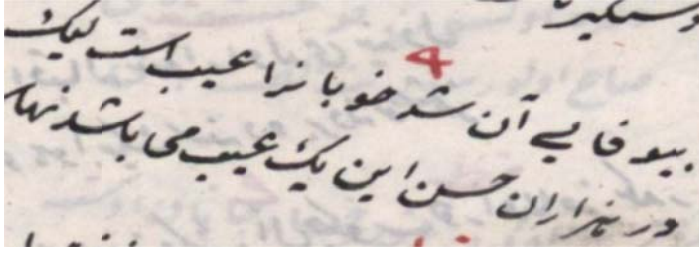 بیوفایی آن شد خوبانرا عیب است لیک
در هزاران حسن این یک عیب می باشد